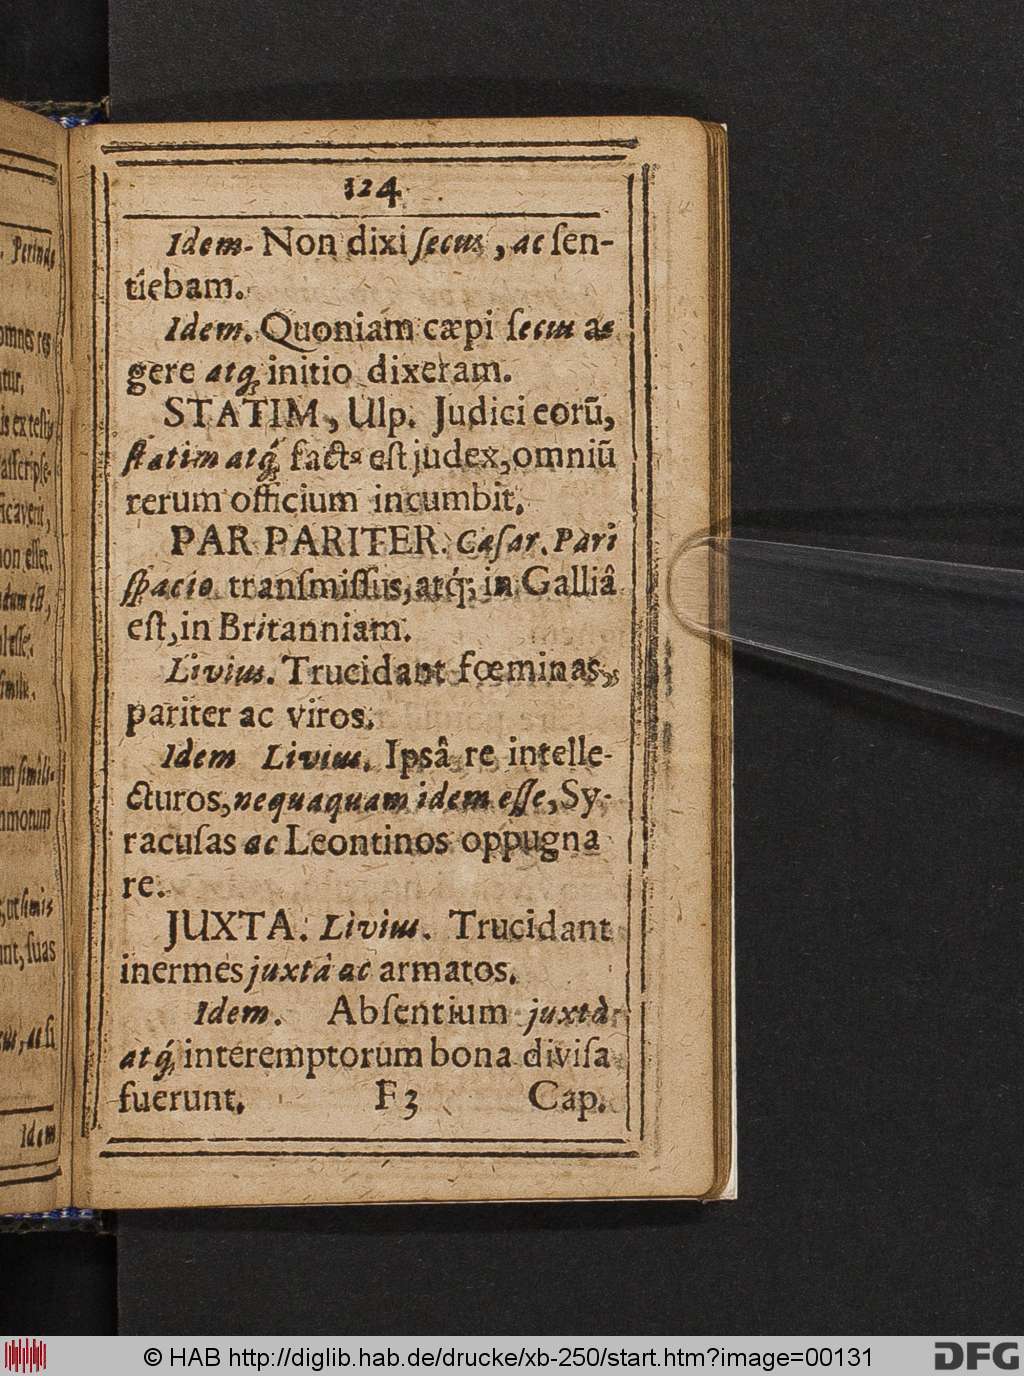 124
Idem. Non dixi ſecus, ac ſen-
tiebam.
Idem. Quoniam cæpi ſecus a-
gere atq; initio dixeram.
STATIM, Ulp. Judici eorũ,
ſtatim atq́; eſt judex, omniũ
rerum officium incumbit.
PAR PARITER. Cæſar. Pari
ſpacio tranſmiſſus, atq́; in Galliâ
eſt, in Britanniam.
Livius. Trucidant fœminas,
pariter ac viros.
Idem Livius. Ipsâ re intelle-
cturos, nequaquam idem eſſe, Sy-
racuſas ac Leontinos oppugna
re.
JUXTA. Livius. Trucidant
inermes juxtà ac armatos.
Idem. Abſentium juxtà
atq́; interemptorum bona diviſa
fuerunt. F3 Cap.
Idem
© HAB http://diglib.hab.de/drucke/xb-250/start.htm?image=00131
DFG